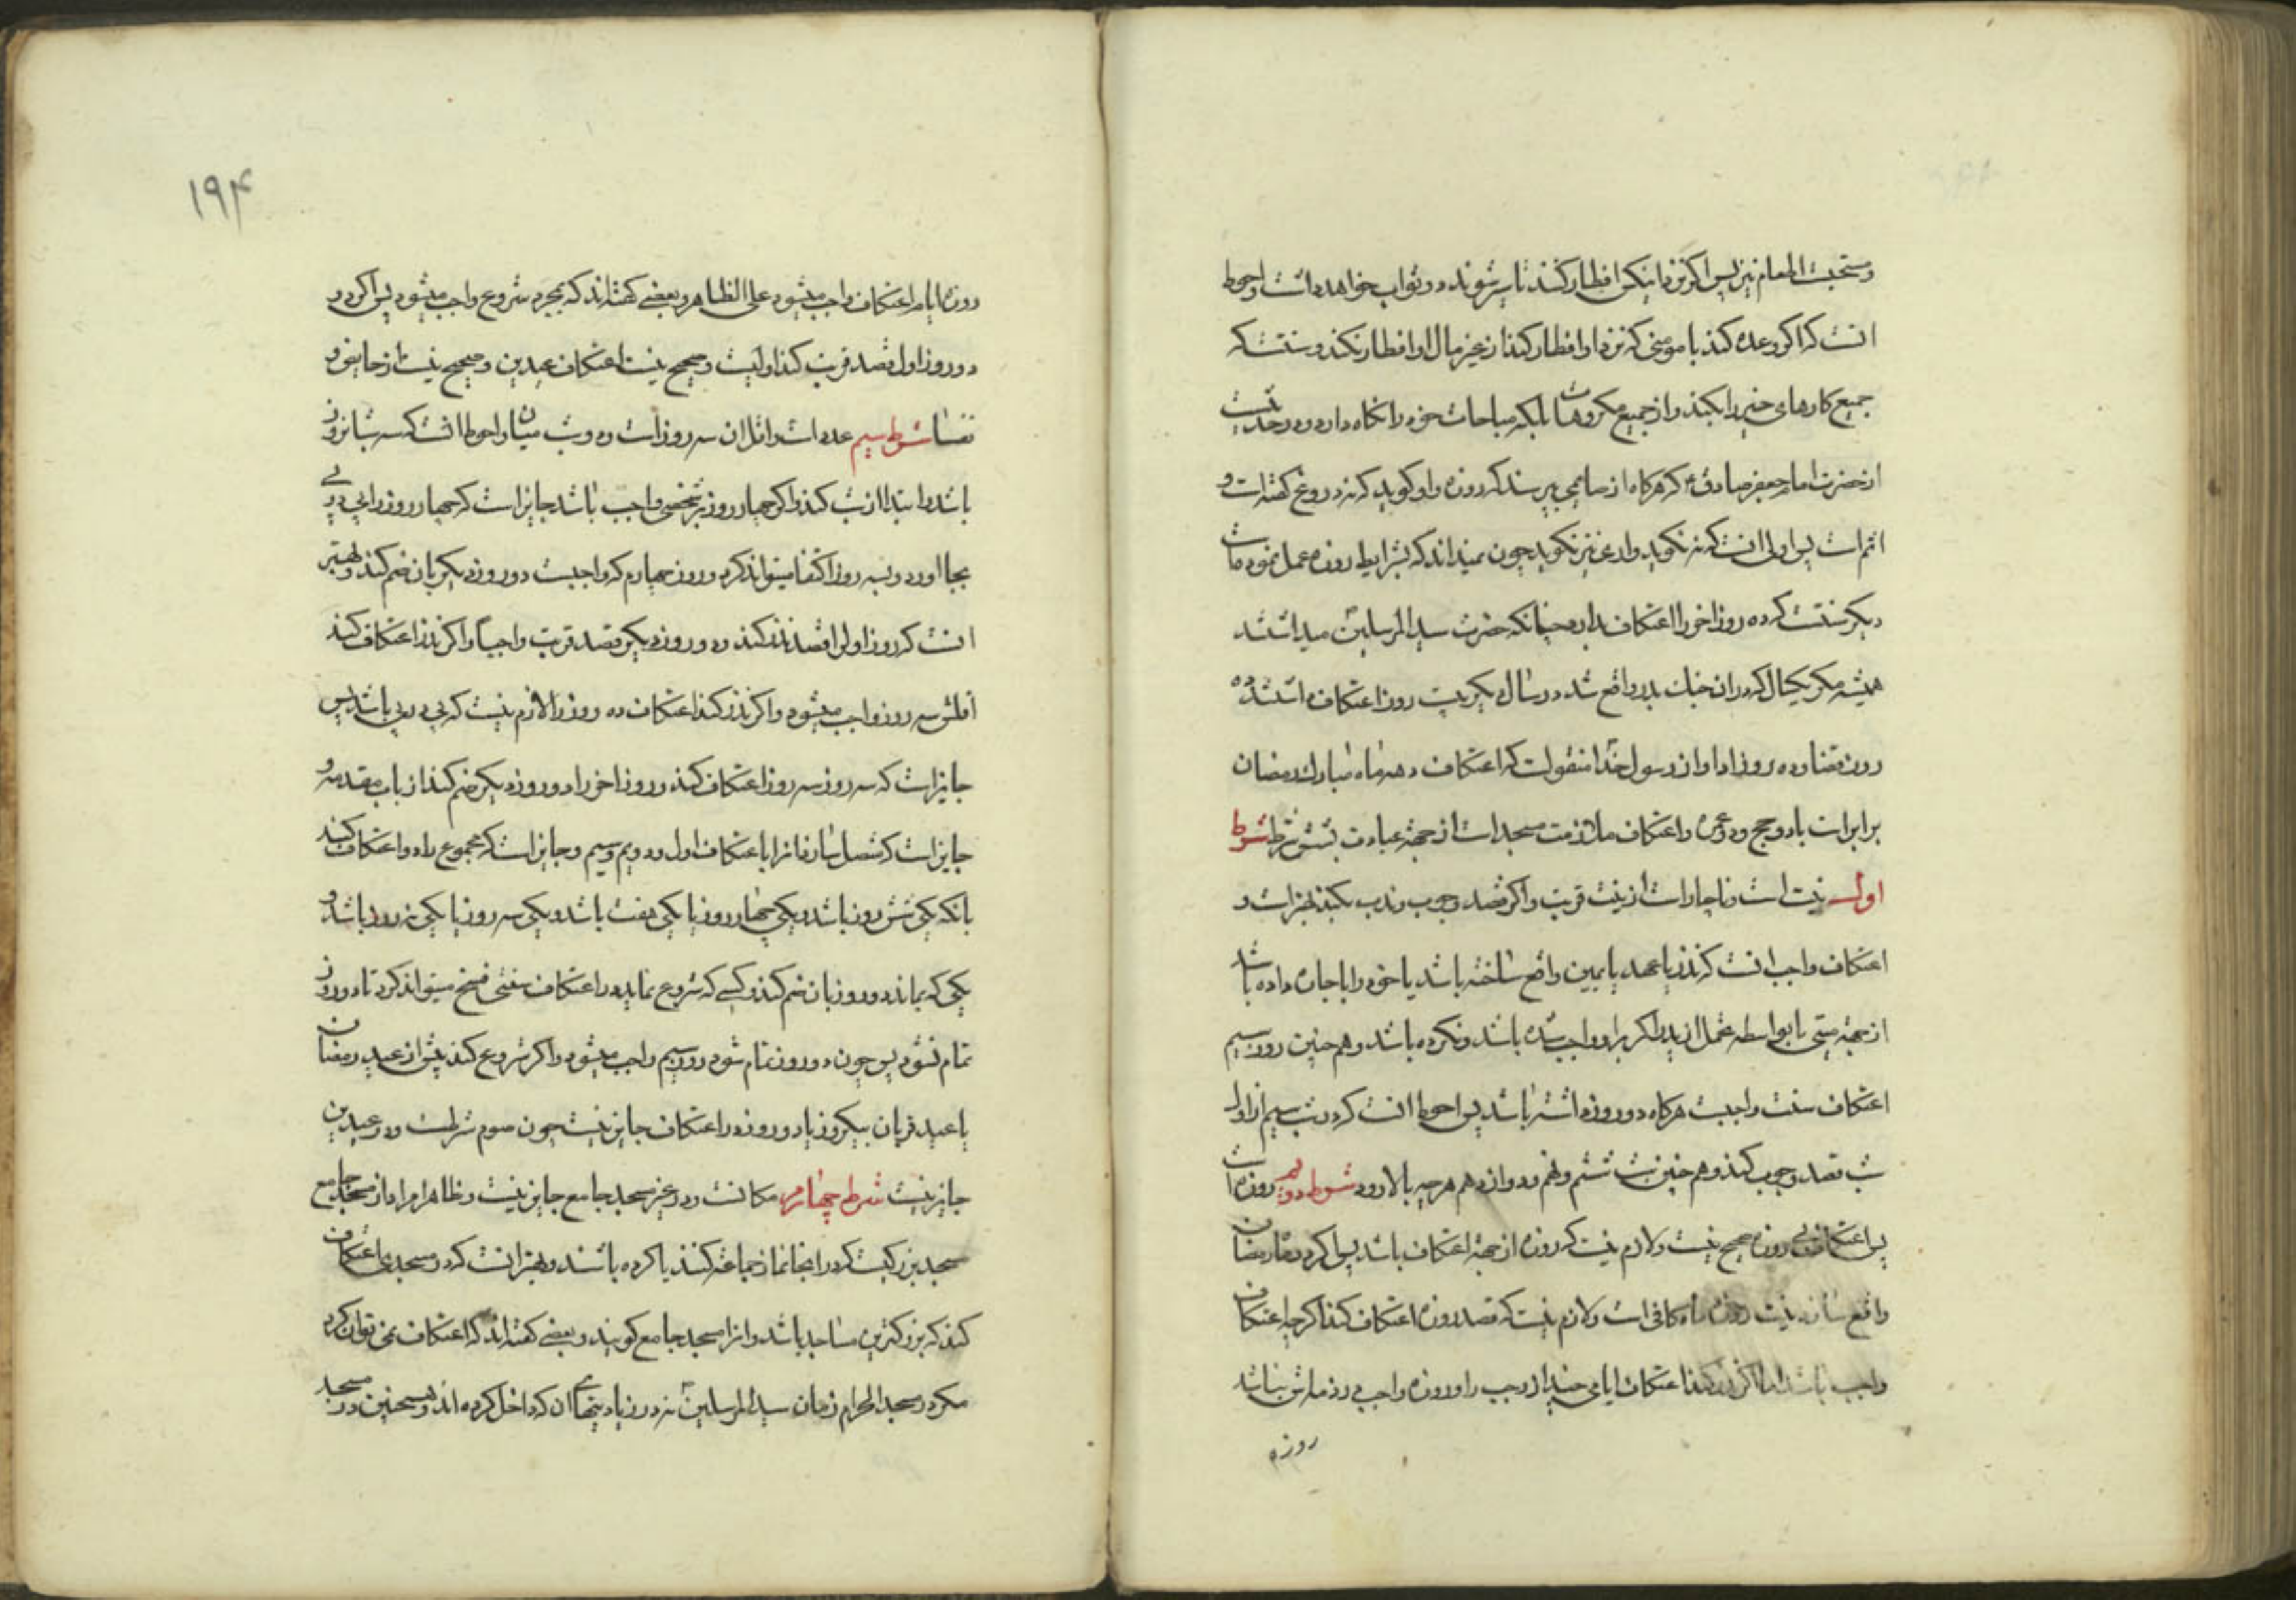 و مستحبست اطعام نیز پس اگر نزد اینکس افطار کنند تا سیر شوند دو ثواب خواهد داشت و احوط
انست که اگر وعده کند با مومنی که نزد او افطار کند از غیر مال او افطار نکند و سنتست که
جمیع کارهای خیر را بکند و از جمیع مکروهات بلکه مباحات خود را نگاه دارد و در حدیثست
از حضرت امام جعفر صادق ع که هرگاه از صایمی پرسند که روزه و او گوید که نه دروغ گفته است و
اثم است پس اولی انست که نه نگوید و اری نیز نگوید چون نمیداند که بشرایط روزه عمل نموده است
دیگر سنتست که ده روز اخر را اعتکاف بدارد چنانکه حضرت سید المرسلین ص میداشتند
همیشه مگر یکسال که دران جنک بدر واقع شد در سال دیگر بیست روز اعتکاف داشتند ده
روز قضا و ده روز ادا و از رسول خدا ص منقولست که اعتکاف دهه ماه مبارک رمضان
برابر است با دو حج و دو عمره و اعتکاف ملازمت مسجد است از جهة عبادت بشش شرط شرط
اول نیت است و ناچار است از نیت قربت و اگر قصد وجوب و ندب بکند بهتر است و
اعتکاف واجب انست که نذر یا عهد یا یمین واقع ساخته باشد یا خود را باجاره داده باشد
از جهة میتی یا بواسطه تحمل از پدر اگر براو واجب شده باشد و نکرده باشد و هم چنین روز سیم
اعتکاف سنت واجبست هرگاه دو روز داشته باشد پس احوط انست که در شب سیم از اول
شب قصد وجوب کند و هم چنین شب ششم و نهم و دوازدهم هر چه بالا رود شرط دویم روزه است
پس اعتکاف بی روزه صحیح نیست و لازم نیست که روزه از جهة اعتکاف باشد پس اگر در ماه رمضان
واقع سازد نیت روزه ماه کافی است و لازم نیست که قصد روزه اعتکاف کند اگر چه اعتکاف
واجب باشد اما اگر نذر کند اعتکاف ایامی چند از رجب را و روزه واجب در ذمه اش نباشد
روزه
۱۹۴
روزه ایام اعتکاف واجب میشود علی الظاهر و بعضی گفته اند که بمجرد شروع واجب میشود پس اگر در
دو روز اول قصد قربت کند اولیست و صحیح نیست اعتکاف عیدین و صحیح نیست از حایض و
نفسا شرط سیم عدد است و اقل ان سه روز است و دو شب میان و احوط انست که سه شبانروز
باشد و ابتدا از شب کند و اگر چهار روز بر شخصی واجب باشد جایز است که چهار روز را پی در پی
بجا اورد و بسه روز اکتفا میتواند کرد و روز چهارم که واجبست دو روز دیگر بان ضم کند و بهتر
انست که روز اول را قصد نذر کند و دو روز دیگر قصد قربت واجبا و اگر نذر اعتکاف کند
اقلش سه روز واجب میشود و اگر نذر کند اعتکاف ده روز را لازم نیست که پی در پی باشد پس
جایز است که سه روز سه روز اعتکاف کند و روز اخر را دو روز دیگر ضم کند از باب مقدمه و
جایز است که متصل سازد انرا باعتکاف اول و دویم و سیم و جایز است که مجموع را دو اعتکاف کند
بانکه یکی شش روز باشد و یکی چهار روز یا یکی هفت باشد و یکی سه روز یا یکی نه روز باشد و
یکی که بماند دو روز بان ضم کند و کسی که شروع نماید در اعتکاف سنتی فسخ میتواند کرد تا دو روز
تمام نشود پس چون دو روز تمام شود روز سیم واجب میشود و اگر شروع کند پیش از عید رمضان
یا عید قربان بیکروز یا دو روز در اعتکاف جایز نیست چون صوم شرطست و در عیدین
جایز نیست شرط چهارم مکانست و در غیر مسجد جامع جایز نیست و ظاهرا مراد از مسجد جامع
مسجد بزرگیست که در انجا نماز جماعة کنند یا کرده باشند و بهتر انست که در مسجدی اعتکاف
کند که بزرگترین مساجد باشد و انرا مسجد جامع گویند و بعضی گفته اند که اعتکاف نمی توان کرد
مگر در مسجد الحرام زمان سید المرسلین ص نه در زیادتیهای ان که داخل کرده اند و همچنین در مسجد